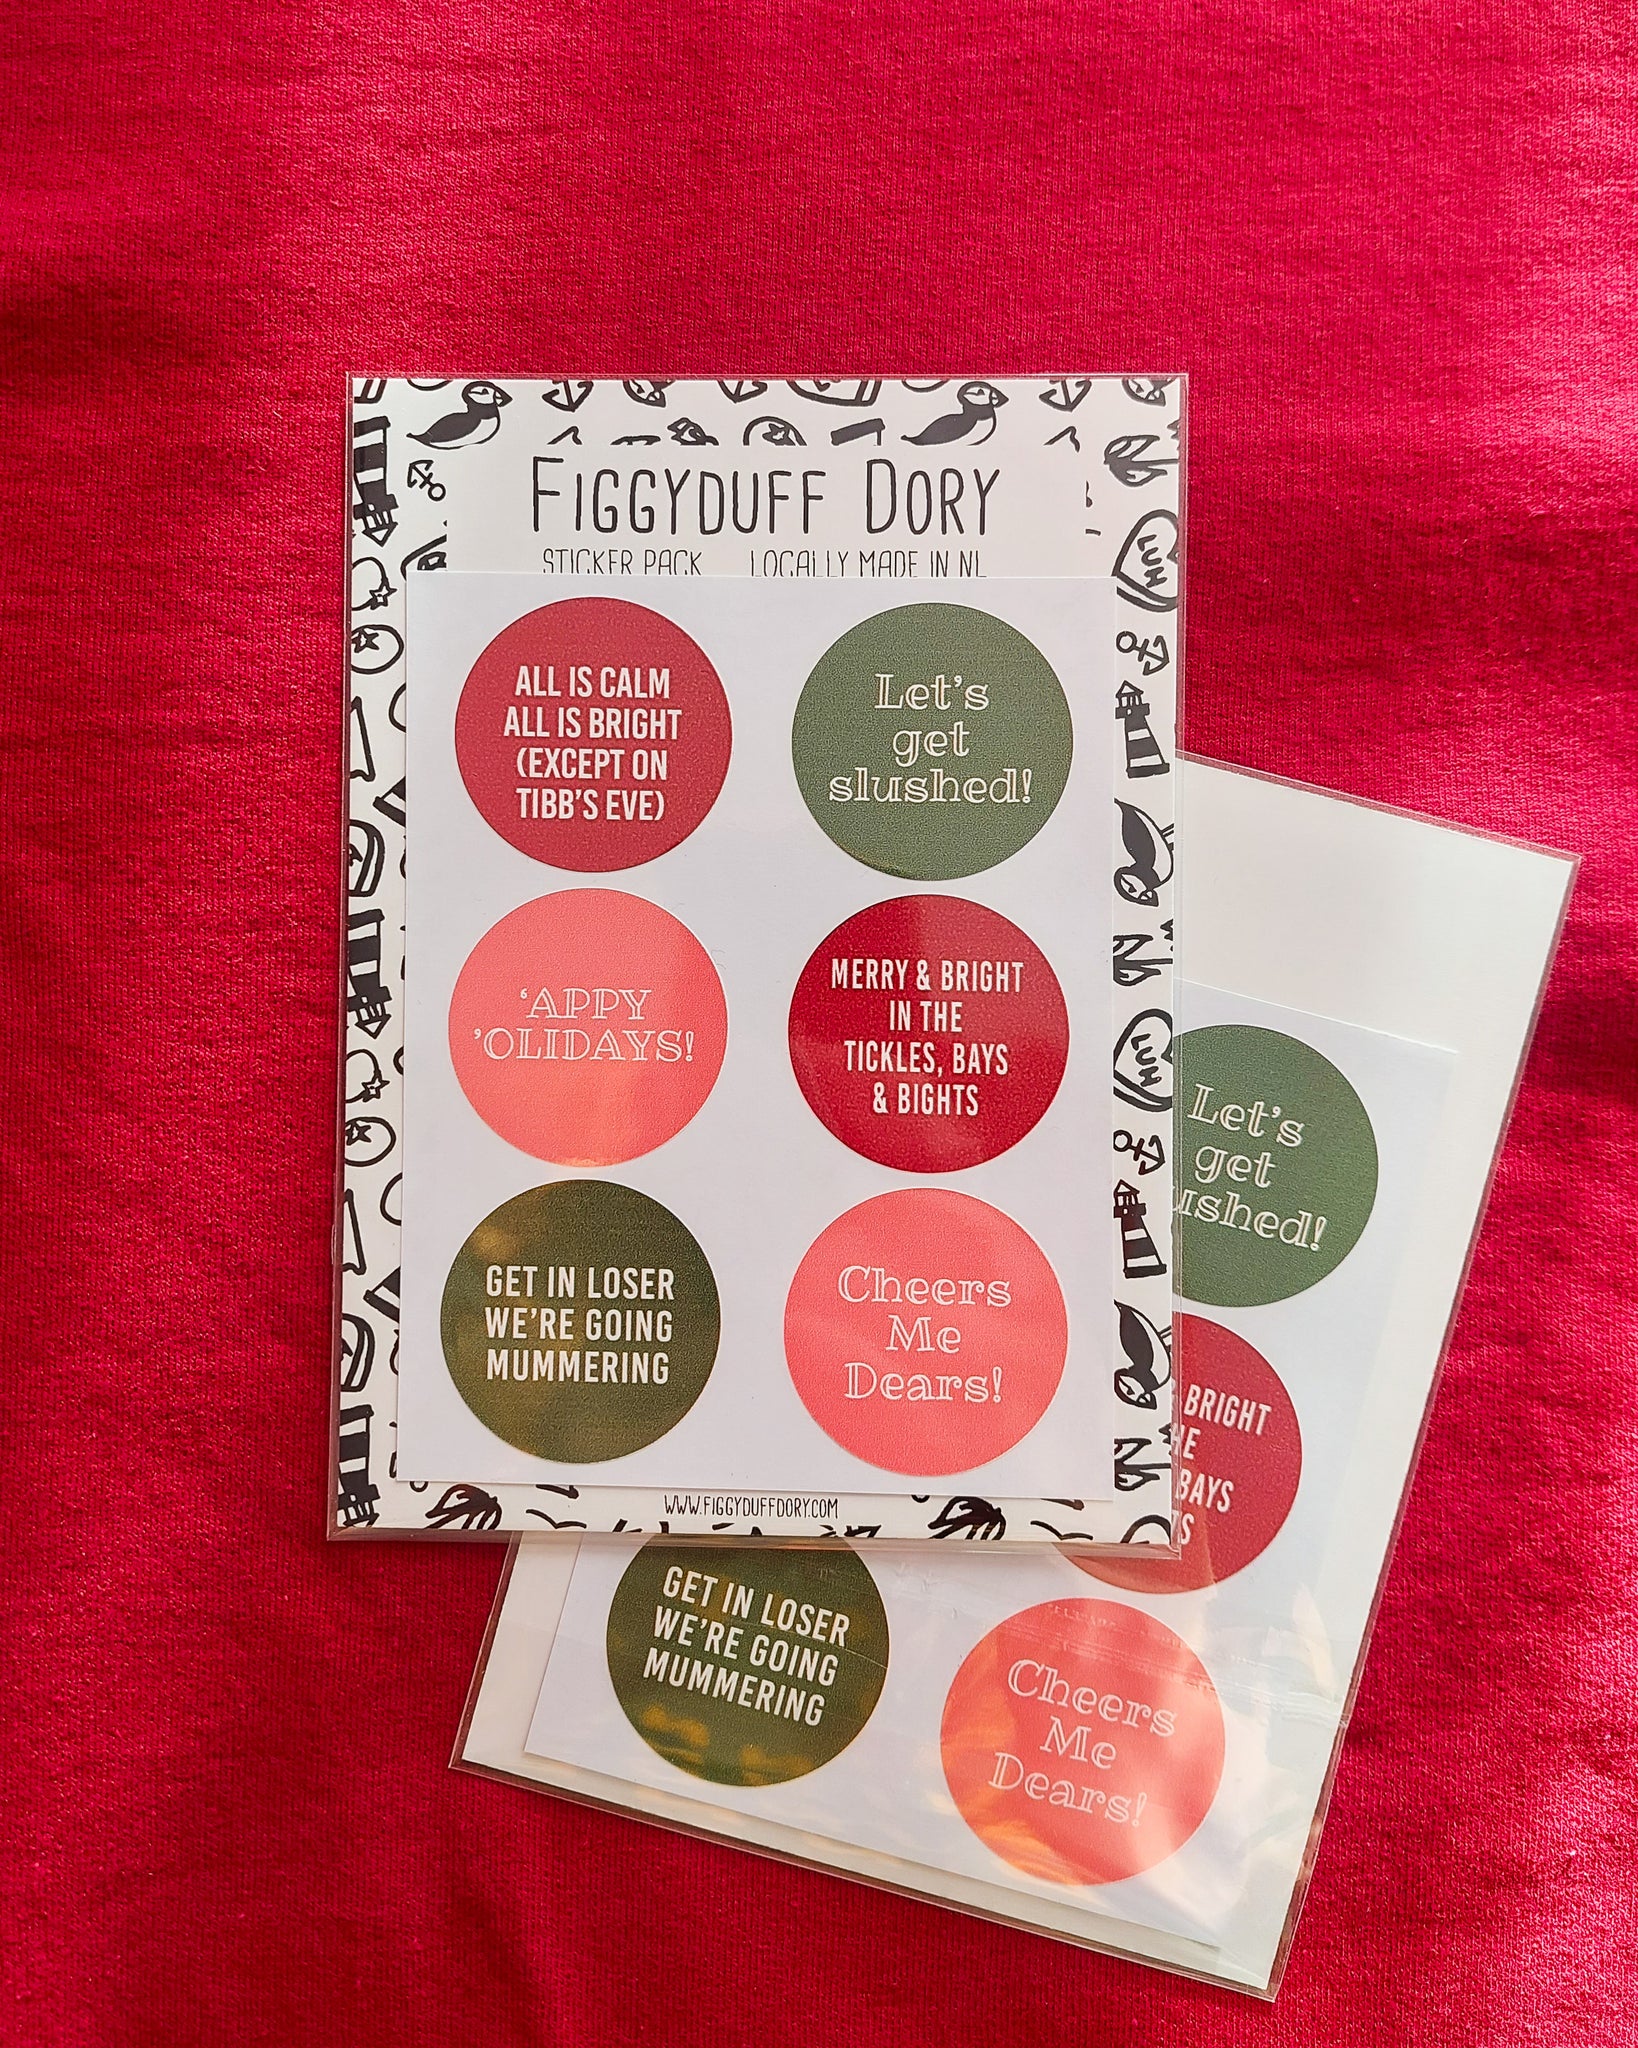 FIGGYDUFF DORY
STICKER PACK LOCALLY MADE IN NL
ALL IS CALM
ALL IS BRIGHT
(EXCEPT ON
TIBB'S EVE)
Let's
get
slushed!
'APPY
'OLIDAYS!
MERRY & BRIGHT
IN THE
TICKLES, BAYS
& BIGHTS
GET IN LOSER
WE'RE GOING
MUMMERING
Cheers
Me
Dears!
WWW.FIGGYDUFFDORY.COM
LUH
LUH
Let's
get
ushed!
BRIGHT
HE
BAYS
S
GET IN LOSER
WE'RE GOING
MUMMERING
Cheers
Me
Dears!